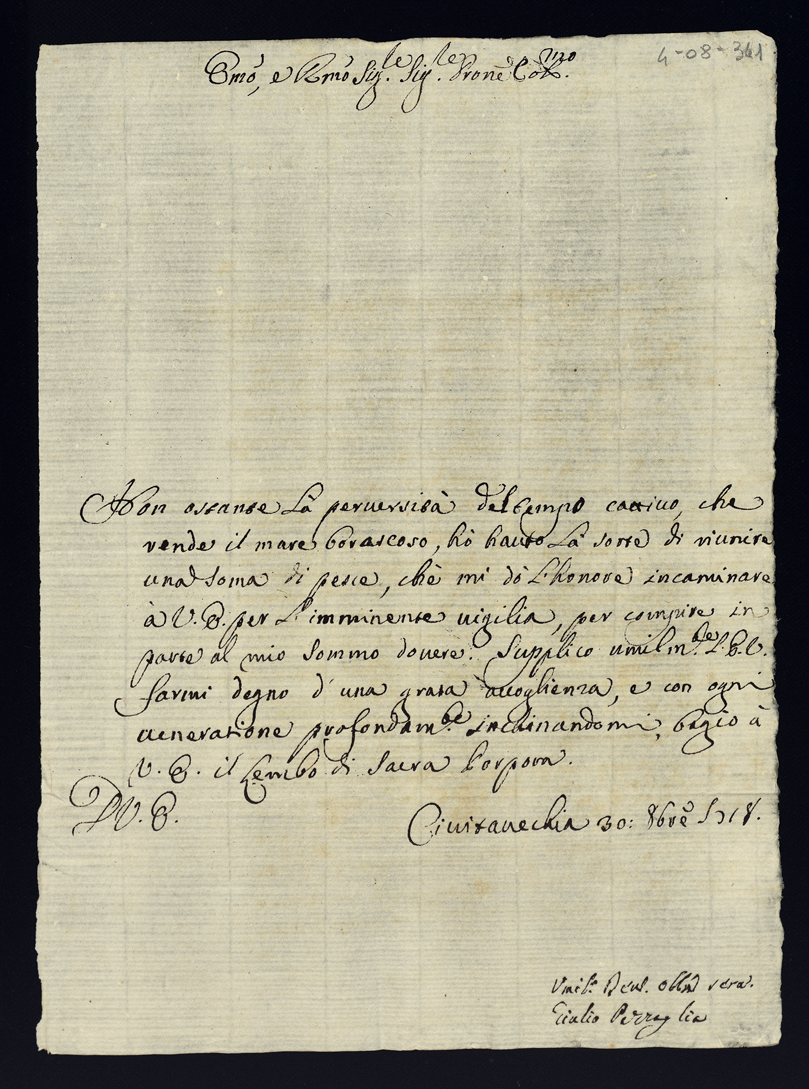 4-08-341
Emo, e Rmo Sig.re Sig.re Prone Col.mo
Non ostante la peruersità del tempo cattiuo, che
rende il mare borascoso, hò hauto la sorte di riunire
una soma di pesce, chè mi dò l'honore incaminare
à V. E. per l'imminente uigilia, per compire in
parte al mio sommo douere. Supplico umilm.te l'E.V.
farmi degno d'una grata accoglienza, e con ogni
ueneratione profondam.te inchinandomi, bagio à
V. E. il Lembo di Sacra Porpora.
D V. E.
Ciuitauechia 30: 8bre
Umil.o Deu. obbl.
Giulio